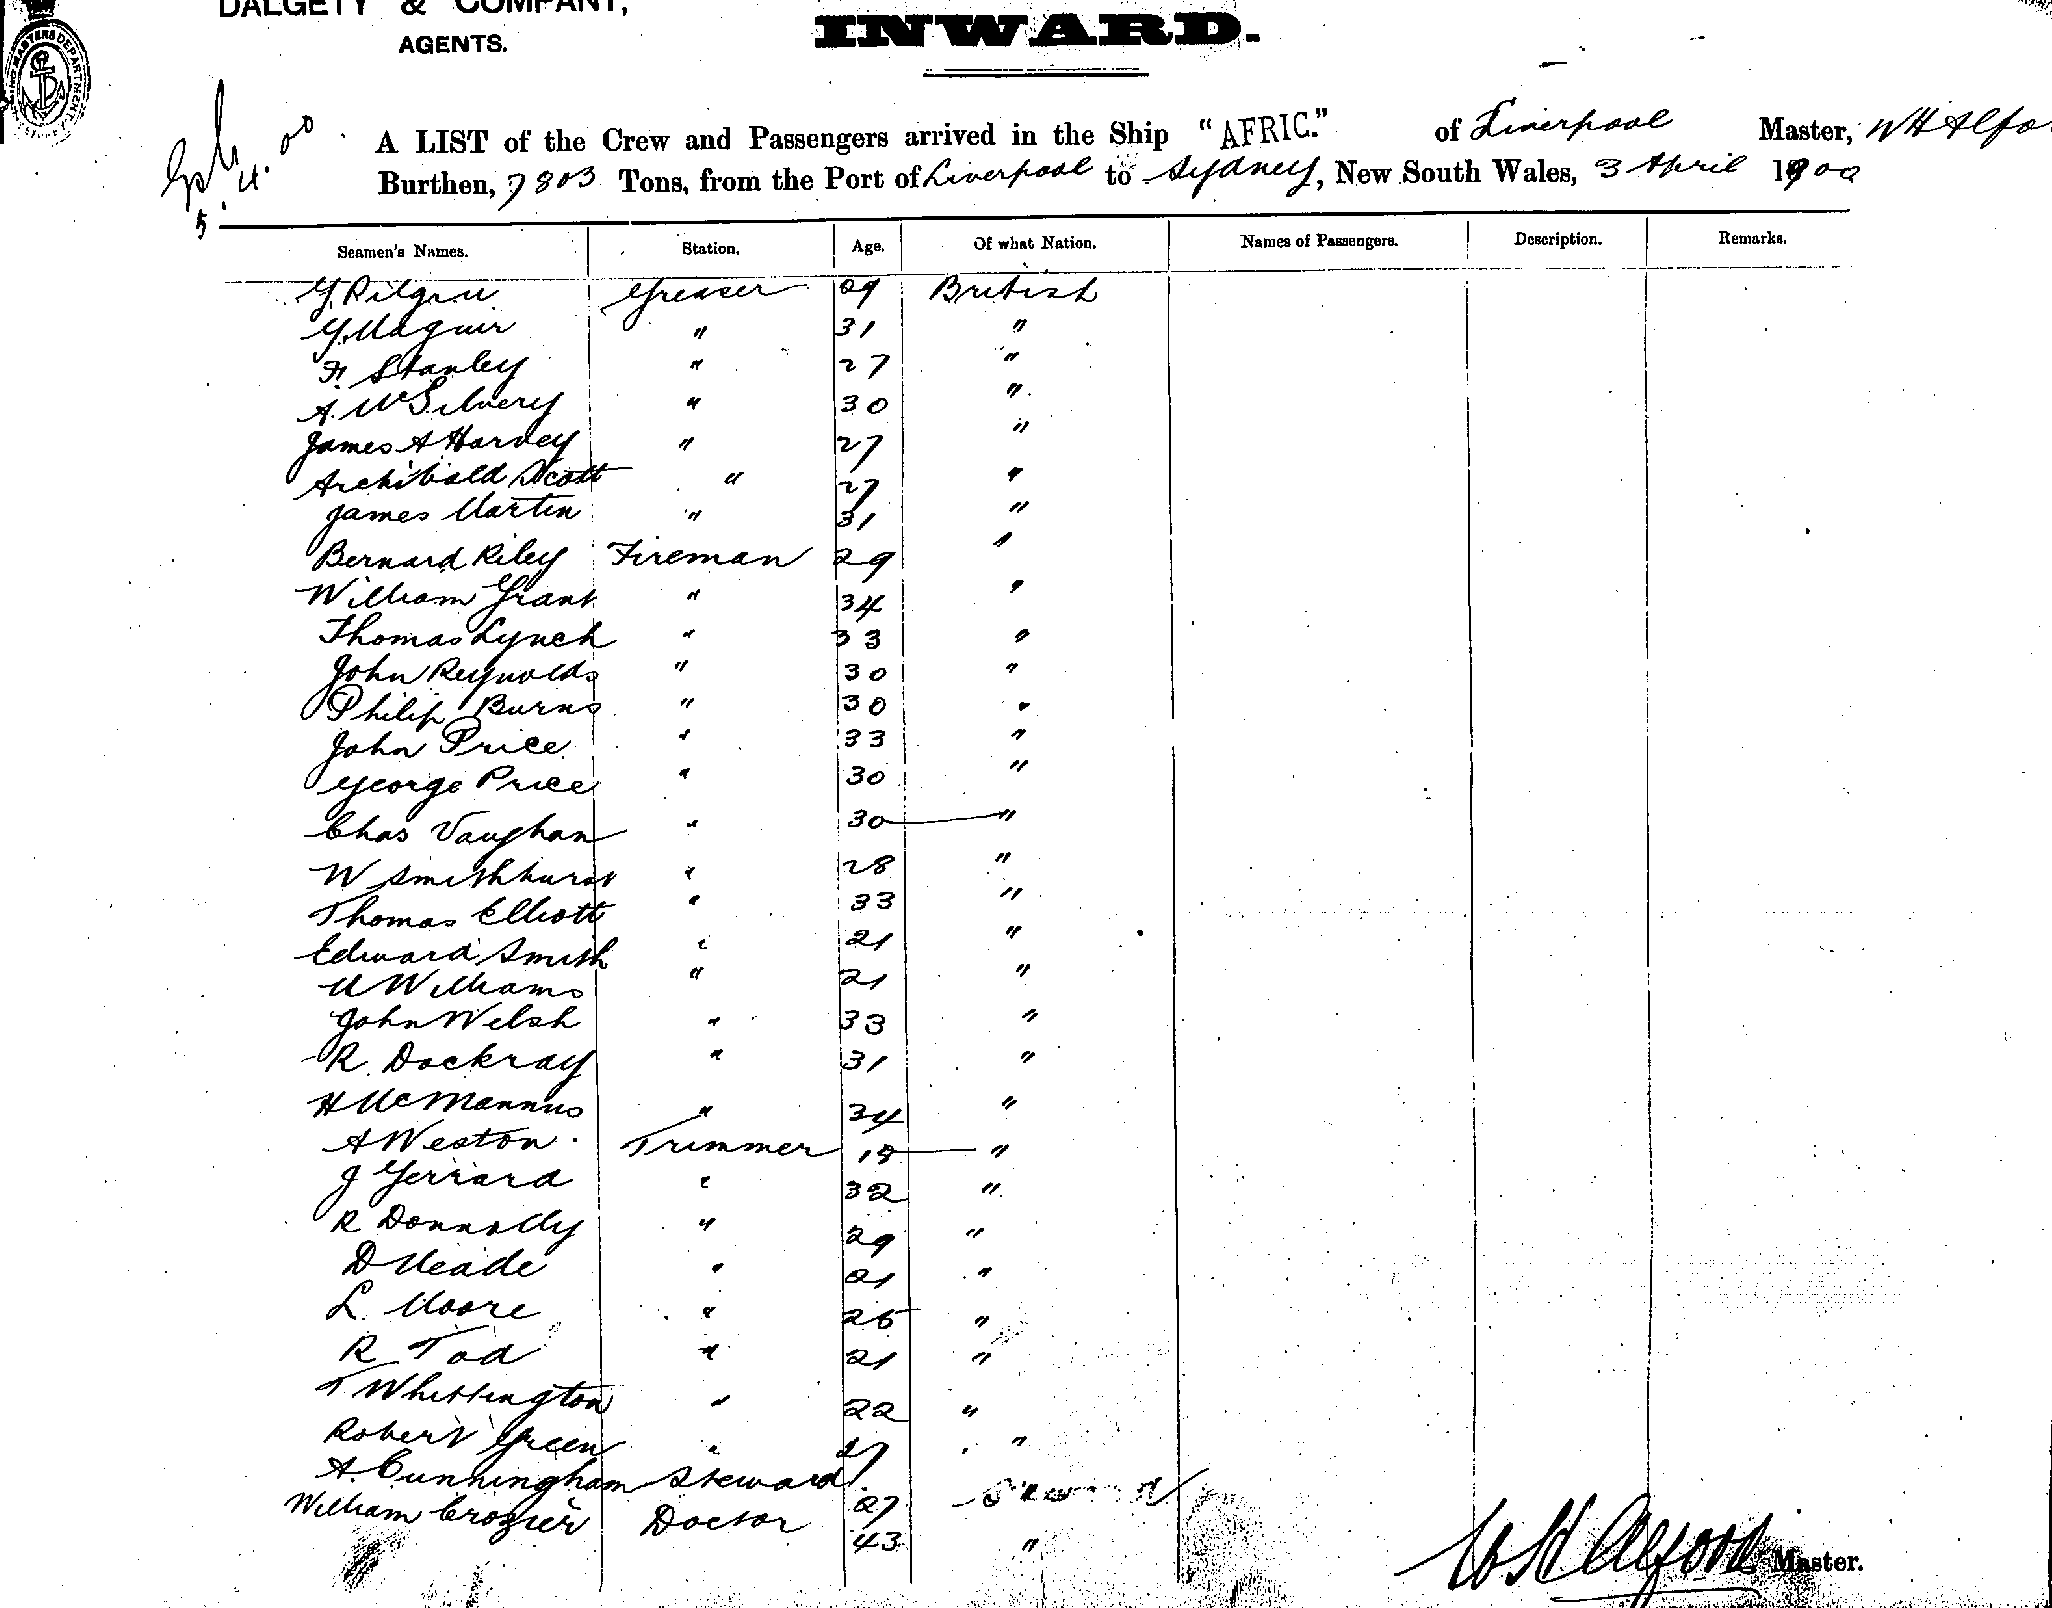 DALGETY & COMPANY,
AGENTS.
INWARD.
4. 00
5
A LIST of the Crew and Passengers arrived in the Ship "AFRIC." of Liverpool Master, W H Alfo
Burthen, 7803 Tons, from the Port of Liverpool to Sydney, New South Wales, 3 April 1900
Seamen's Names. Station. Age. Of what Nation. Names of Passengers. Description. Remarks.
Greaser 29 British
" 31 "
F. Stanley " 27 "
A. McSilvery " 30 "
James A Harvey " 27 "
Archibald Scott " 27 "
James Martin " 31 "
Bernard Riley Fireman 29 "
William Grant " 34 "
Thomas Lynch " 33 "
John Reynolds " 30 "
Philip Burns " 30 "
John Price " 33 "
George Price " 30 "
Chas Vaughan " 30 "
W Smithhurst " 28 "
Thomas Elliott " 33 "
Edward Smith " 21 "
Williams " 21 "
John Welsh " 33 "
R. Dockray " 31 "
H McMannus " 34 "
A Weston Trimmer 18 "
J Gerrard " 32 "
R Donnolly " 29 "
D Meade " 21 "
L. Moore " 26 "
R Tod " 21 "
T Whittington " 22 "
Robert Green " 27 "
A. Cunningham Steward 27
William Crozier Doctor 43 "
W H Alford Master.